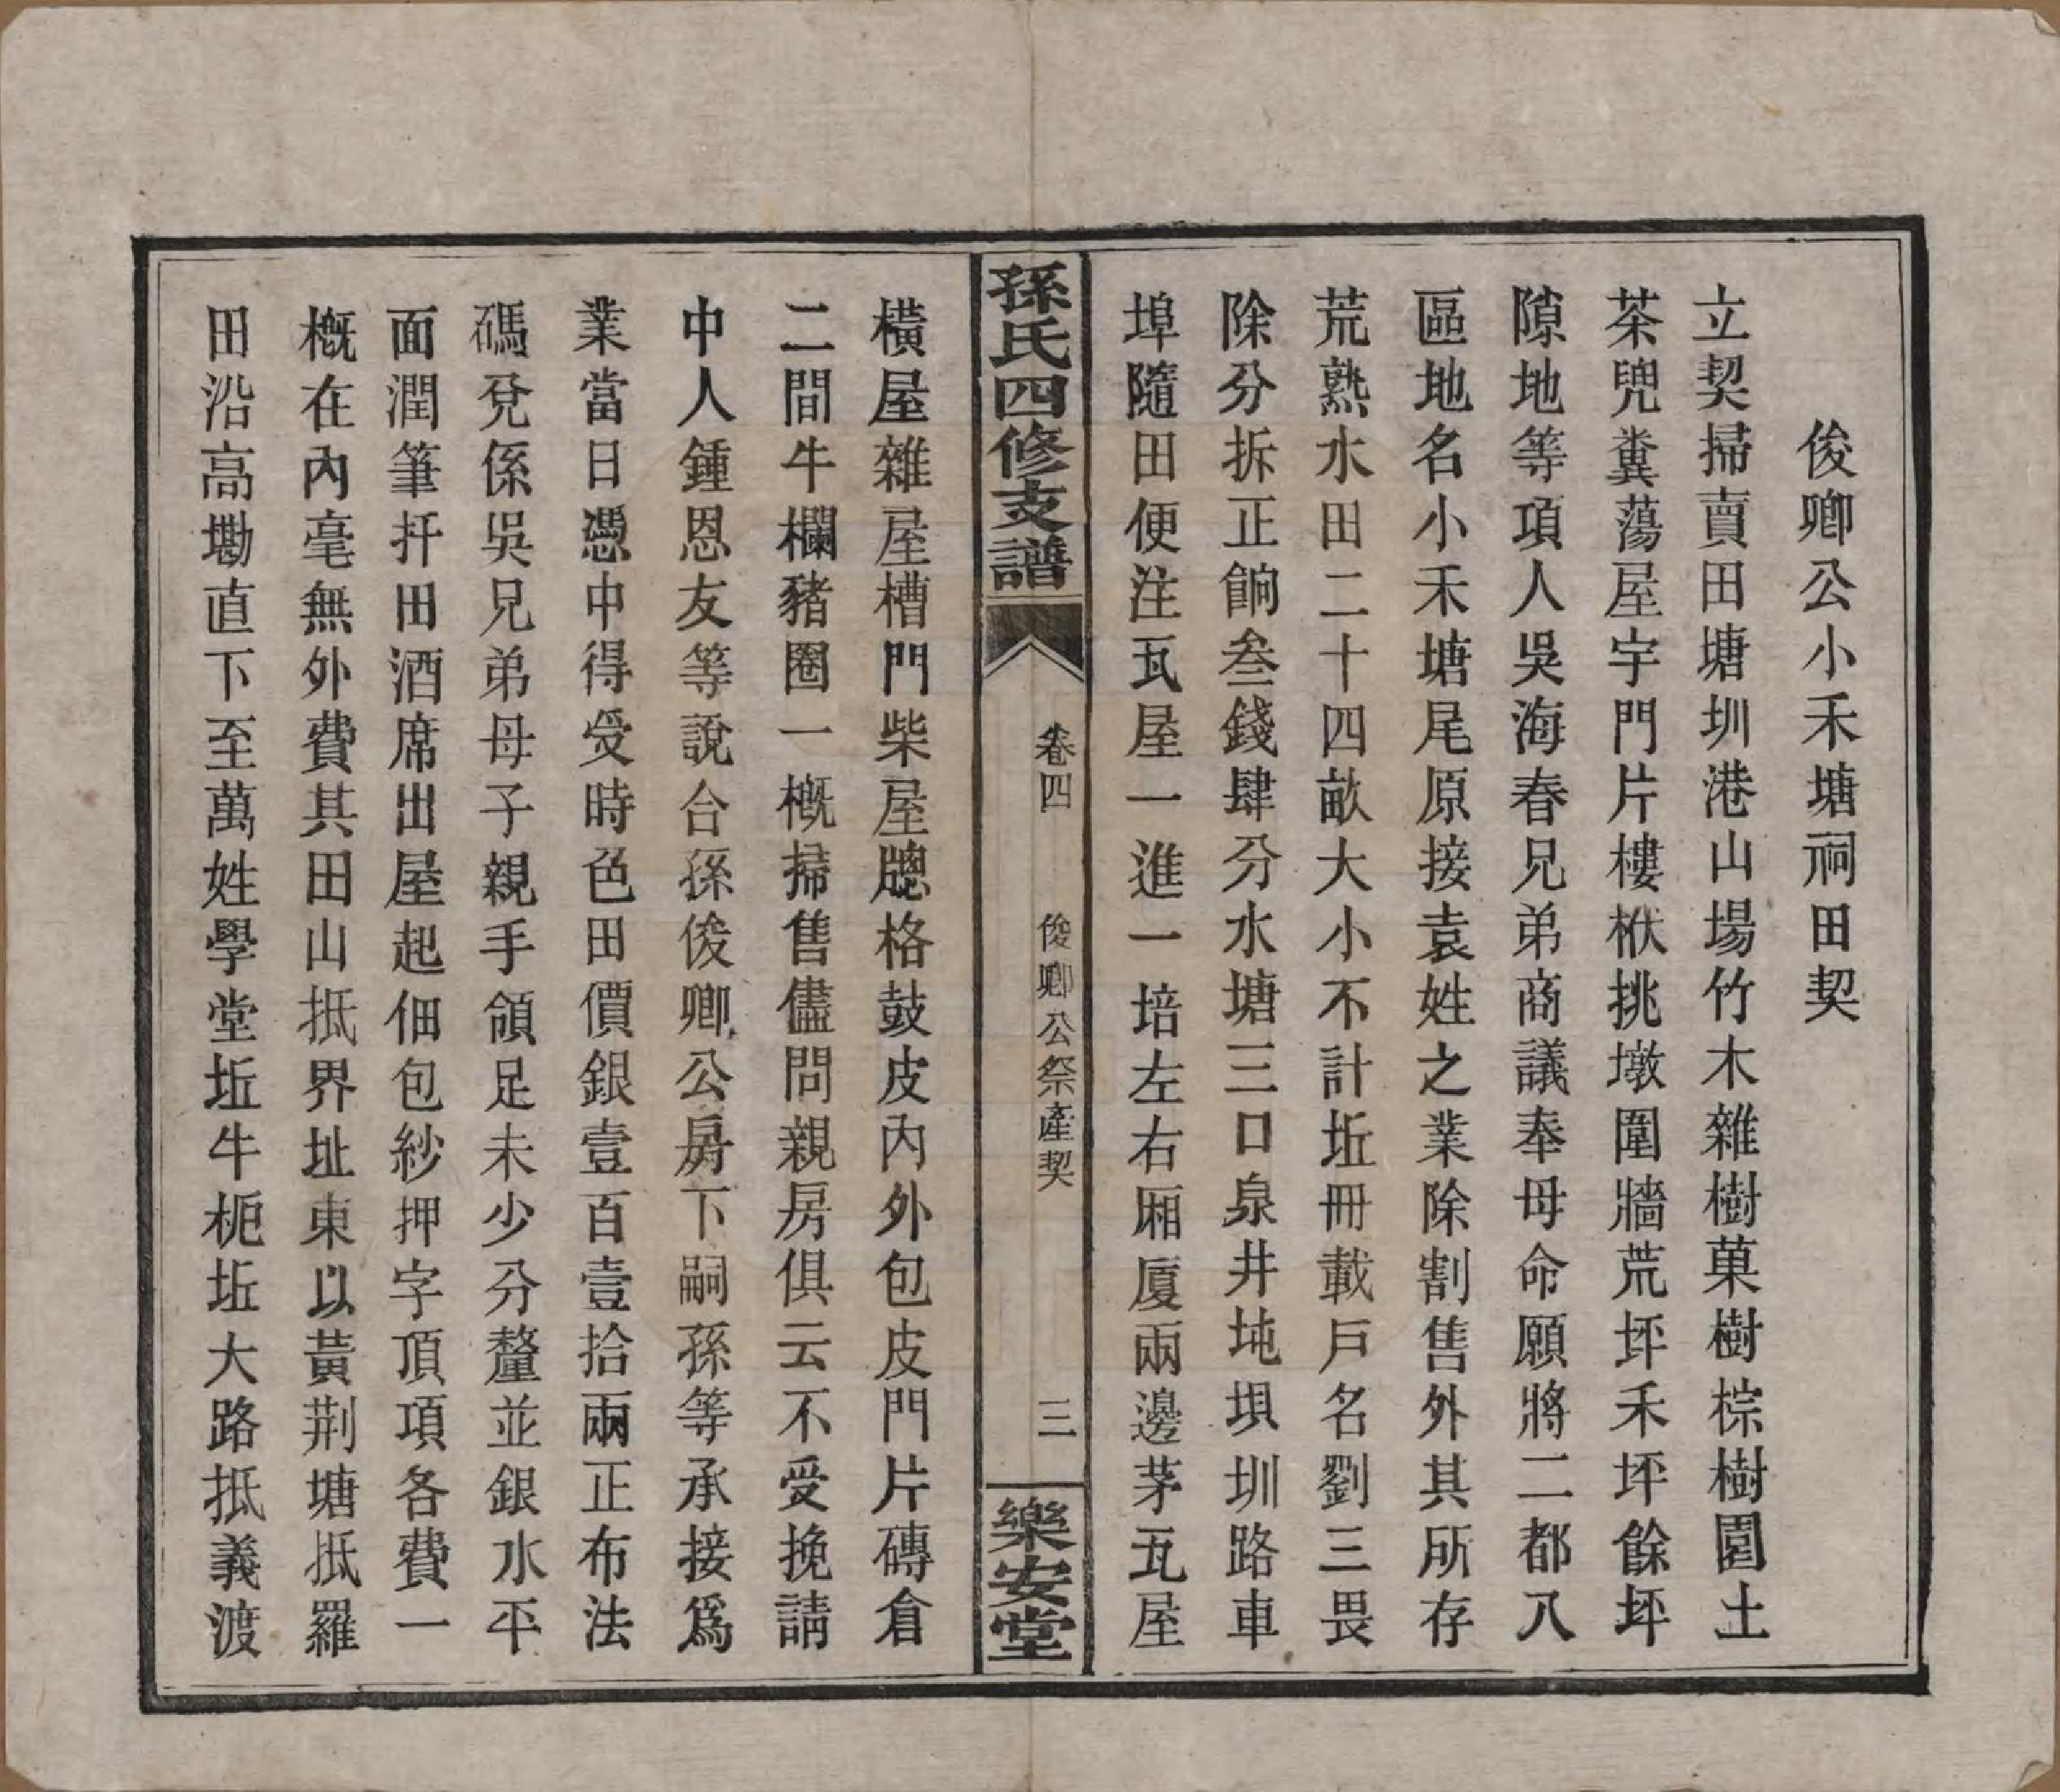 俊卿公小禾塘祠田契
立契掃賣田塘圳港山場竹木雜樹菓樹棕樹園土
茶兜糞蕩屋宇門片樓栿挑墩圍牆荒坪禾坪餘坪
隙地等項人吳海春兄弟商議奉母命願將二都八
區地名小禾塘尾原接袁姓之業除割售外其所存
荒熟水田二十四畝大小不計坵冊載戶名劉三畏
除分拆正餉叁錢肆分水塘三口泉井坉垻圳路車
埠隨田便注瓦屋一進一培左右厢厦兩邊茅瓦屋
孫氏四修支譜
卷四
俊卿公祭產契
三
樂安堂
橫屋雜屋槽門柴屋牕格鼓皮內外包皮門片磚倉
二間牛欄豬圈一概掃售儘問親房俱云不受挽請
中人鍾恩友等說合孫俊卿公房下嗣孫等承接爲
業當日憑中得受時色田價銀壹百壹拾兩正布法
碼兌係吳兄弟母子親手領足未少分釐並銀水平
面潤筆扦田酒席出屋起佃包紗押字頂項各費一
概在內毫無外費其田山抵界址東以黃荆塘抵羅
田沿高墈直下至萬姓學堂坵牛枙坵大路抵義渡